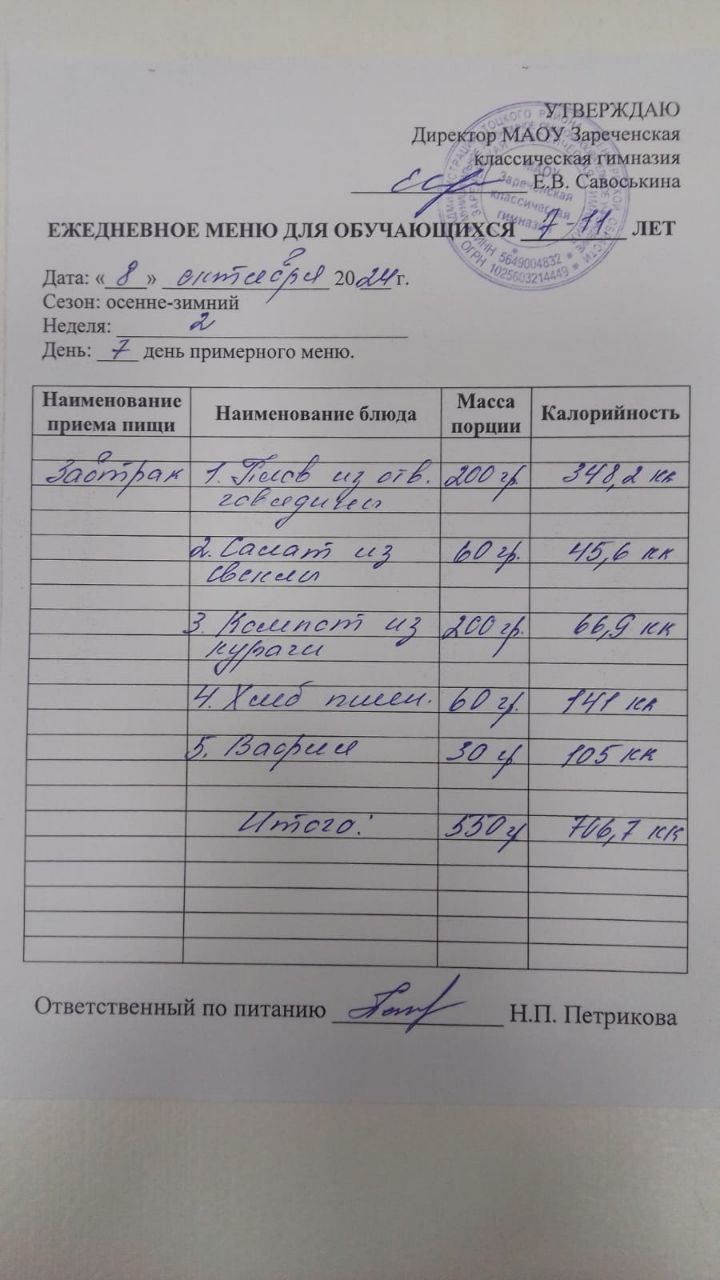 УТВЕРЖДАЮ
Директор МАОУ Зареченская
классическая гимназия
Е.В. Савоськина
ЕЖЕДНЕВНОЕ МЕНЮ ДЛЯ ОБУЧАЮЩИХСЯ 7-11 ЛЕТ
Дата: «8» октября 2024 г.
Сезон: осенне-зимний
Неделя: 2
День: 7 день примерного меню.
Наименование приема пищи Наименование блюда Масса порции Калорийность
Завтрак 1. Плов из отв. 200 гр. 348,2 кк
говядины
2. Салат из 60 гр. 45,6 кк
свеклы
3. Компот из 200 гр. 66,9 кк
кураги
4. Хлеб пшен. 60 гр. 141 кк
5. Вафля 30 гр 105 кк
Итого: 550 г 706,7 кк
Ответственный по питанию Н.П. Петрикова
МАОУ
Зареченская
классическая
гимназия
ИНН 5649004832
ОГРН 1025603214449